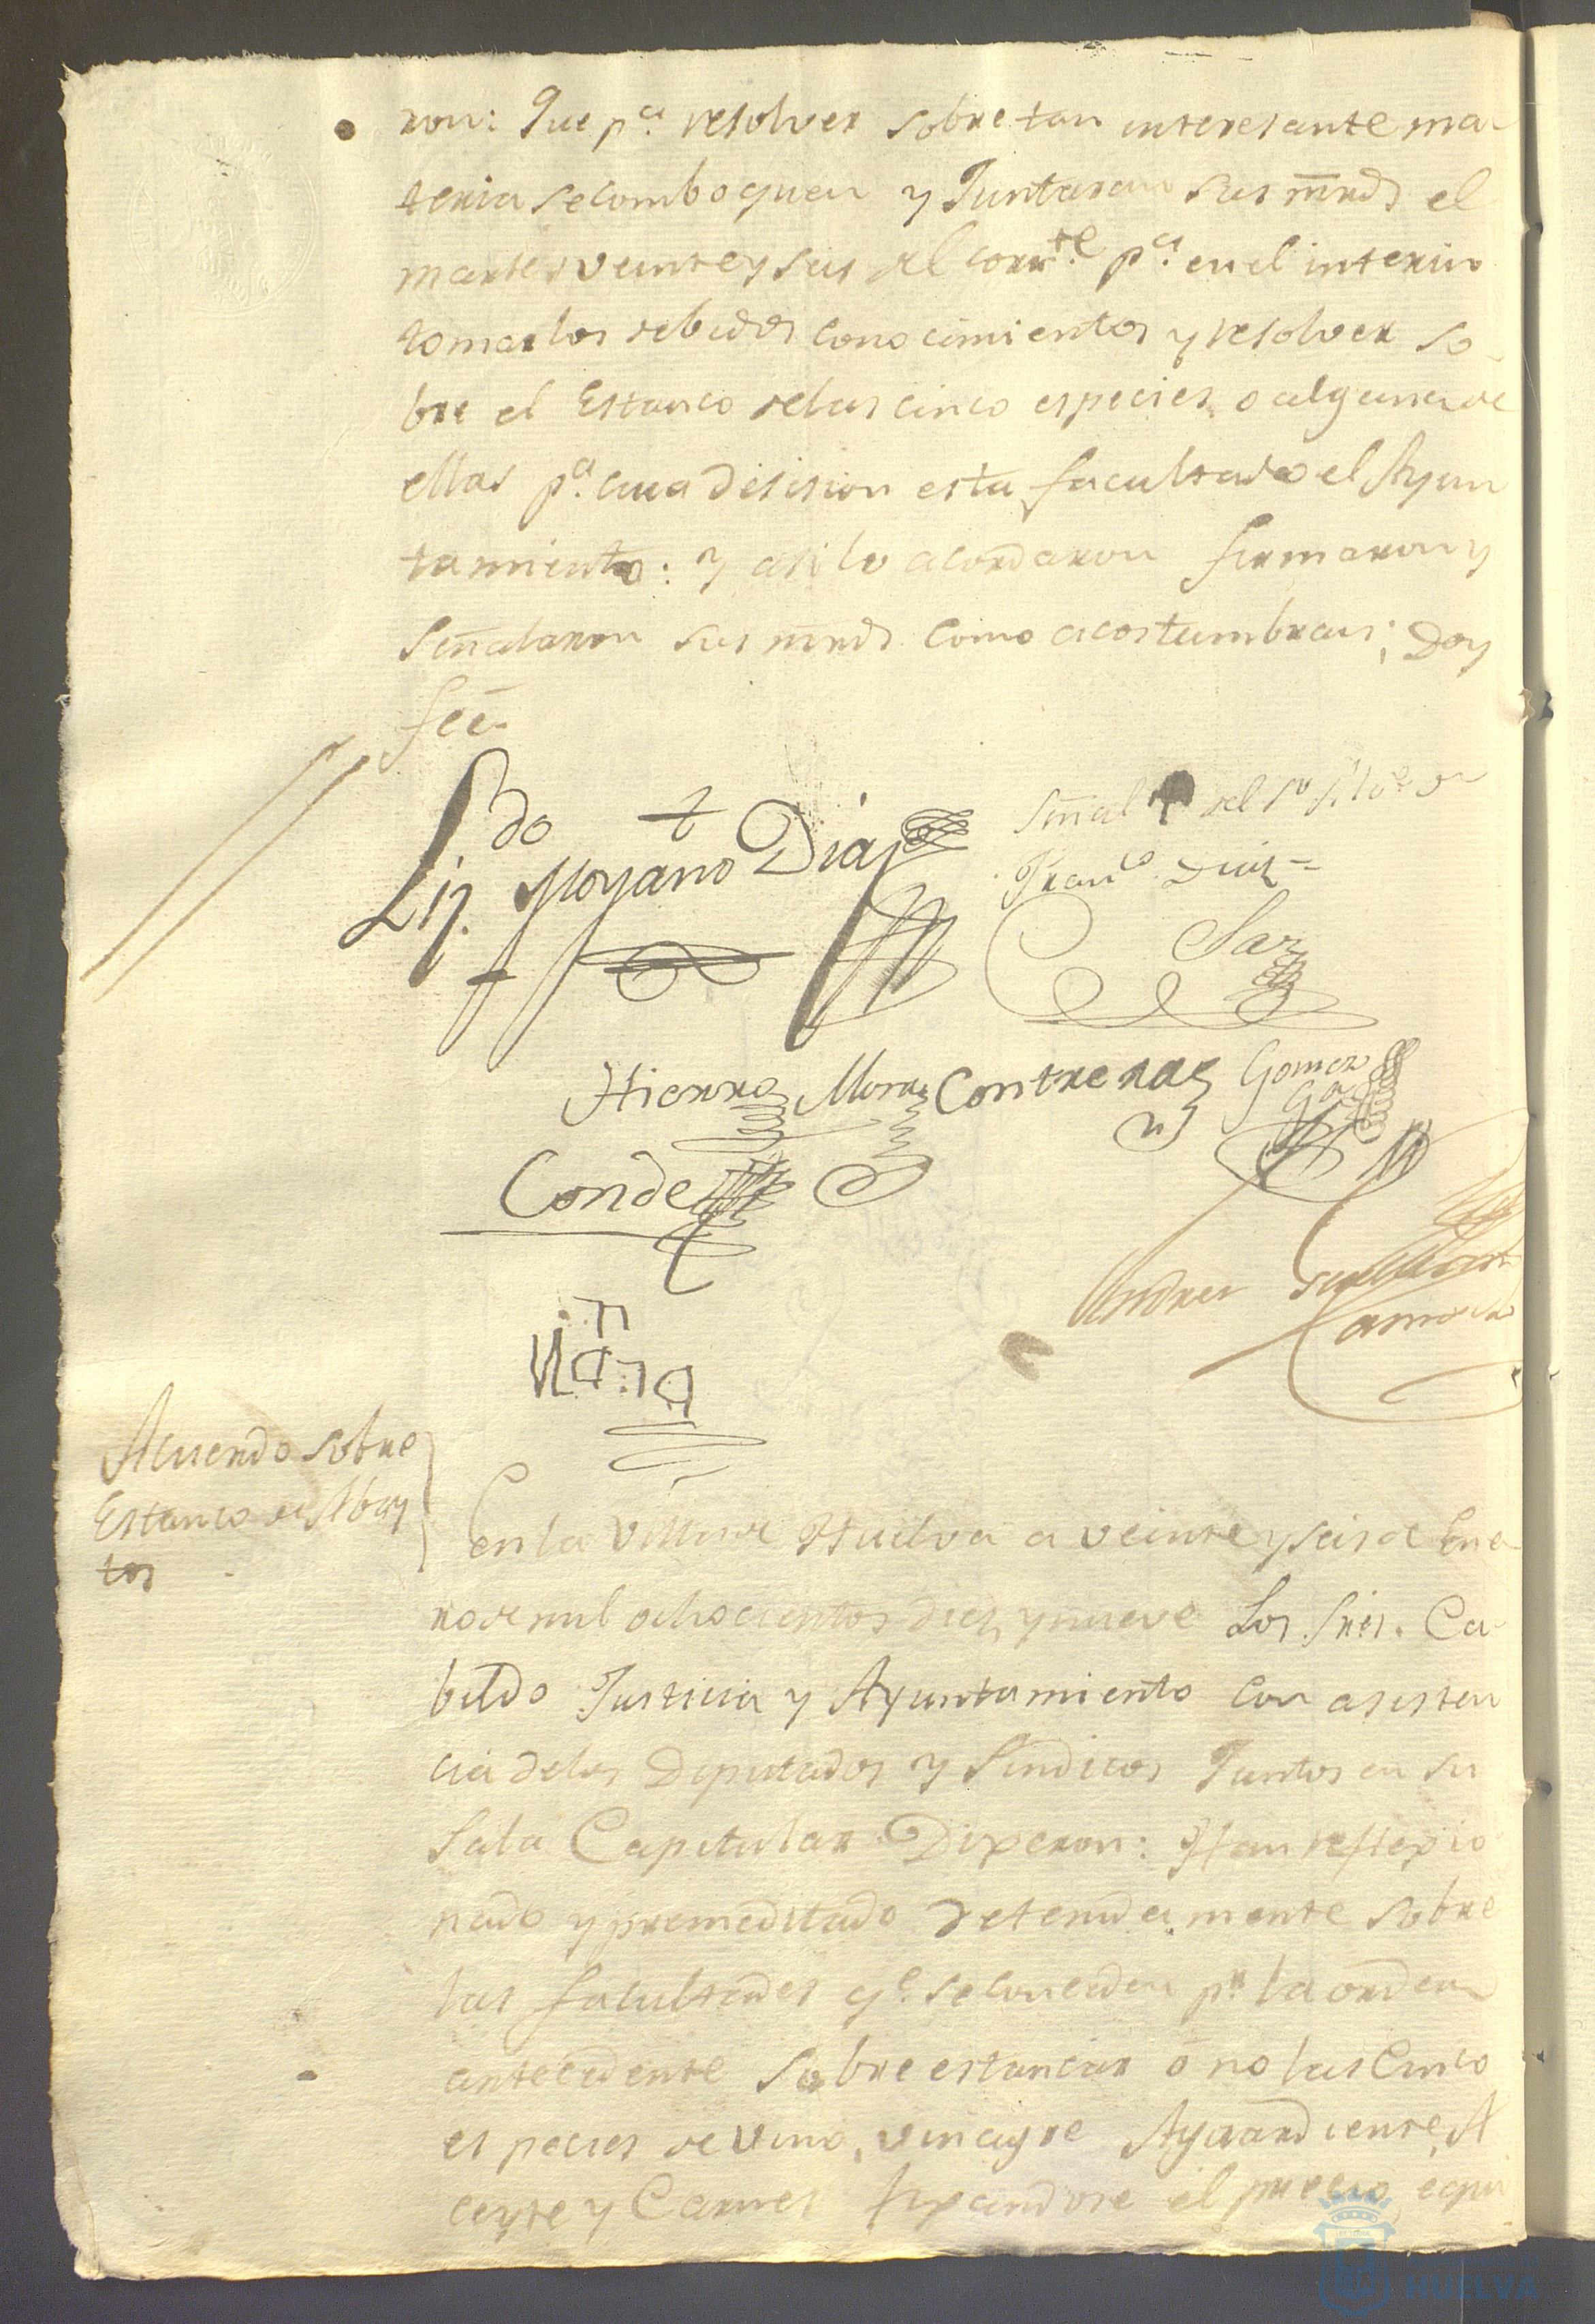 ron: Que p.ª resolver sobre tan interesante ma
teria se comboquen y Juntaran sus mrds el
martes veinte y seis del corr.te p.ª en el interin
tomar los debidos conocimientos y resolver so-
bre el Estanco de las cinco especies, o alguna de
ellas p.ª cuia desision esta facultado el Ayun
tamiento: y asi lo acordaron firmaron y
señalaron sus mrds como acostumbran; Doy
feé.
Liz.do Moyano
Diaz
Señal del
Fran.co Diaz =
Saz
Hierro
Mora
Contreras
Gomez
Conde
Viana
Andres
Camacho
Acuerdo sobre
Estanco de Abas
tos
En la Villa de Huelva a veinte y seis de Ene-
ro de mil ochocientos diez y nueve Los Sres. Ca-
bildo Justicia y Ayuntamiento con asisten
cia de los Diputados y Sindicos Juntos en su
Sala Capitular Dixeron: Han reflexio
nado y premeditado detenidamente sobre
las facultades q.e se conceden p.r la orden
antecedente sobre estancar o no las Cinco
especies de vino, vinagre Aguardiente, A
ceyte y Carnes fixandose el precio equi
HUELVA